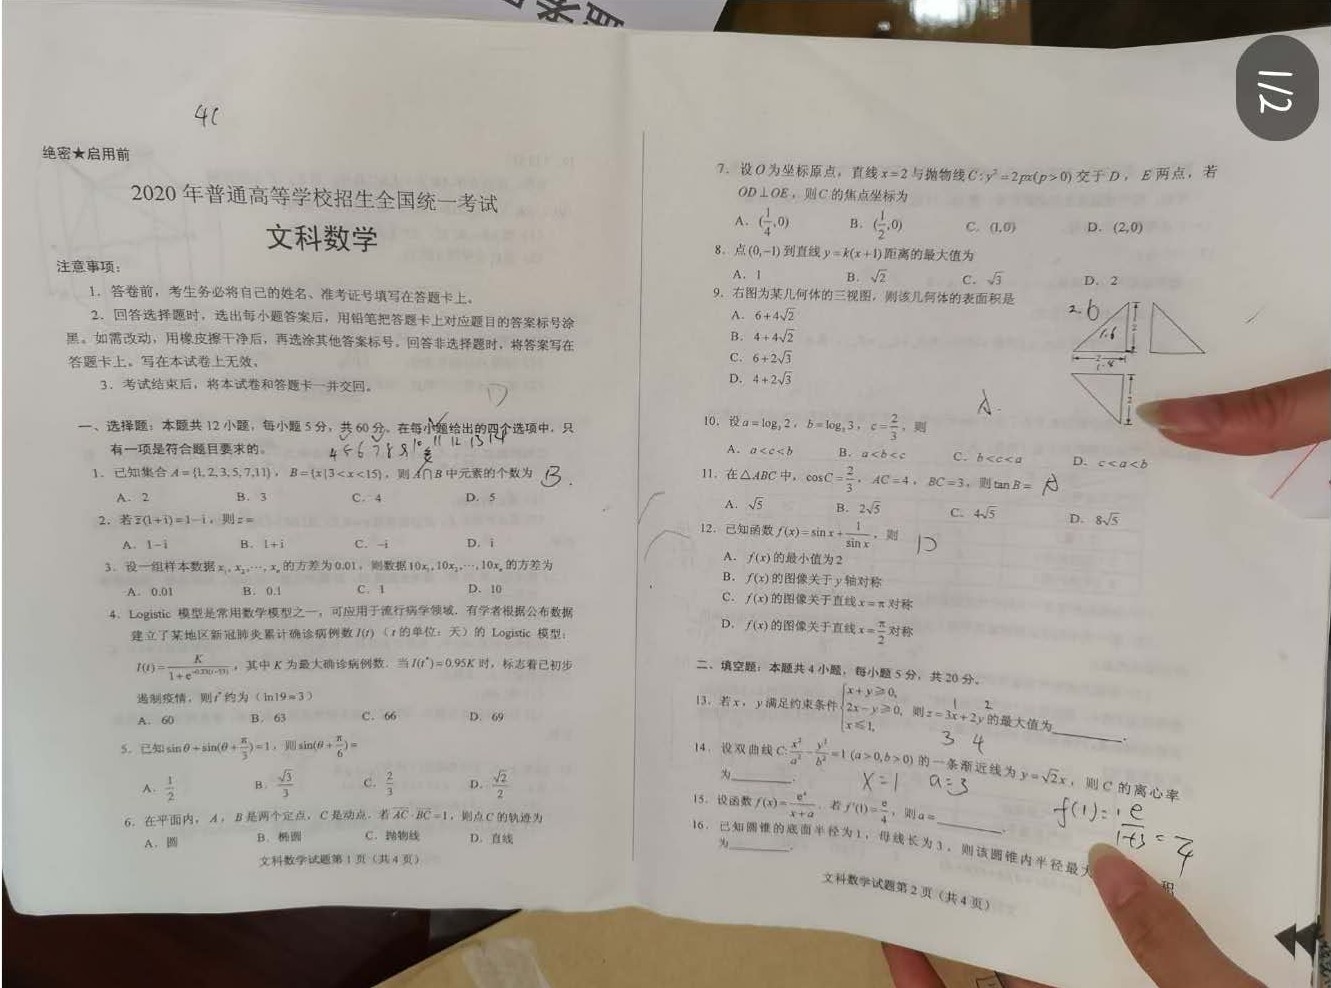 1/2
绝密★启用前
2020 年普通高等学校招生全国统一考试
文科数学
注意事项：
1．答卷前，考生务必将自己的姓名、准考证号填写在答题卡上。
2．回答选择题时，选出每小题答案后，用铅笔把答题卡上对应题目的答案标号涂
黑。如需改动，用橡皮擦干净后，再选涂其他答案标号。回答非选择题时，将答案写在
答题卡上。写在本试卷上无效。
3．考试结束后，将本试卷和答题卡一并交回。
一、选择题：本题共 12 小题，每小题 5 分，共 60 分。在每小题给出的四个选项中，只
有一项是符合题目要求的。
1．已知集合 A={1,2,3,5,7,11}，B={x|3<x<15}，则 A∩B 中元素的个数为 B.
A．2 B．3 C．4 D．5
2．若 z̄(1+i)=1−i，则 z=
A．1−i B．1+i C．−i D．i
3．设一组样本数据 x₁,x₂,…,xₙ 的方差为 0.01，则数据 10x₁,10x₂,…,10xₙ 的方差为
A．0.01 B．0.1 C．1 D．10
4．Logistic 模型是常用数学模型之一，可应用于流行病学领域．有学者根据公布数据
建立了某地区新冠肺炎累计确诊病例数 I(t)（t 的单位：天）的 Logistic 模型：
I(t)=K/(1+e^(−0.23(t−53)))，其中 K 为最大确诊病例数．当 I(t*)=0.95K 时，标志着已初步
遏制疫情，则 t* 约为（ln19≈3）
A．60 B．63 C．66 D．69
5．已知 sinθ+sin(θ+π/3)=1，则 sin(θ+π/6)=
A．1/2 B．√3/3 C．2/3 D．√2/2
6．在平面内，A，B 是两个定点，C 是动点．若 AC·BC=1，则点 C 的轨迹为
A．圆 B．椭圆 C．抛物线 D．直线
文科数学试题第 1 页（共 4 页）
7．设 O 为坐标原点，直线 x=2 与抛物线 C:y²=2px(p>0) 交于 D，E 两点，若
OD⊥OE，则 C 的焦点坐标为
A．(1/4,0) B．(1/2,0) C．(1,0) D．(2,0)
8．点 (0,−1) 到直线 y=k(x+1) 距离的最大值为
A．1 B．√2 C．√3 D．2
9．右图为某几何体的三视图，则该几何体的表面积是
A．6+4√2
B．4+4√2
C．6+2√3
D．4+2√3
10．设 a=log₃2，b=log₅3，c=2/3，则 A.
A．a<c<b B．a<b<c C．b<c<a D．c<a<b
11．在△ABC 中，cosC=2/3，AC=4，BC=3，则 tanB= A
A．√5 B．2√5 C．4√5 D．8√5
12．已知函数 f(x)=sinx+1/sinx，则 D
A．f(x) 的最小值为 2
B．f(x) 的图像关于 y 轴对称
C．f(x) 的图像关于直线 x=π 对称
D．f(x) 的图像关于直线 x=π/2 对称
二、填空题：本题共 4 小题，每小题 5 分，共 20 分。
13．若 x，y 满足约束条件 {x+y≥0, 2x−y≥0, x≤1, 则 z=3x+2y 的最大值为______．
1 2
3 4
14．设双曲线 C:x²/a²−y²/b²=1 (a>0,b>0) 的一条渐近线为 y=√2x，则 C 的离心率
为______．
x=1 a=3
15．设函数 f(x)=eˣ/(x+a)．若 f′(1)=e/4，则 a=______．
16．已知圆锥的底面半径为 1，母线长为 3，则该圆锥内半径最大
积
为______．
文科数学试题第 2 页（共 4 页）